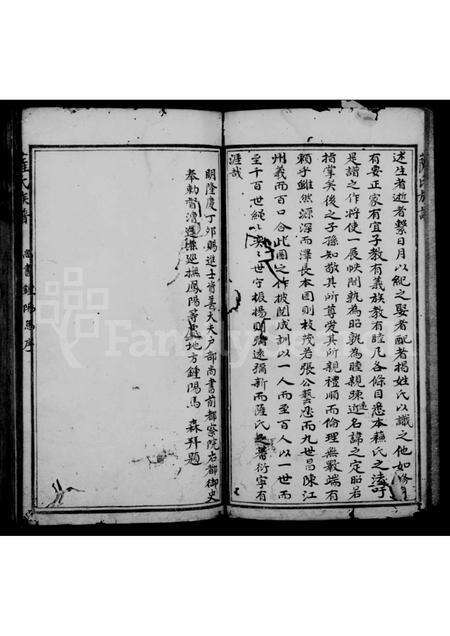 述生者逝者繫日月以紀之娶者配者揭姓氏以識之他如修
有要正家有宜子教有義族教有睦凡各條目悉本蘓氏之法吁
是譜之作將使一展帙間孰為昭孰為睦親踈近名諦之定昭若
指掌矣後之子孫知敬其所尊愛其所親禮順而倫理無斁端有
賴乎雖然源深而澤長本固則枝茂若張公藝而九世昌陳江
州義而百口合此圖之作披閱成訓以一人而至百人以一世而
至千百世繩世守振揚明遠弥新而蘿氏之著衍寧有
涯哉
明隆慶丁卯賜進士資善大夫户部尚書前都察院右都御史
奉勅督漕運撫鳳陽等處地方鍾陽馬森拜題
羅氏族譜
尚書鍾陽馬序
FamilySearch